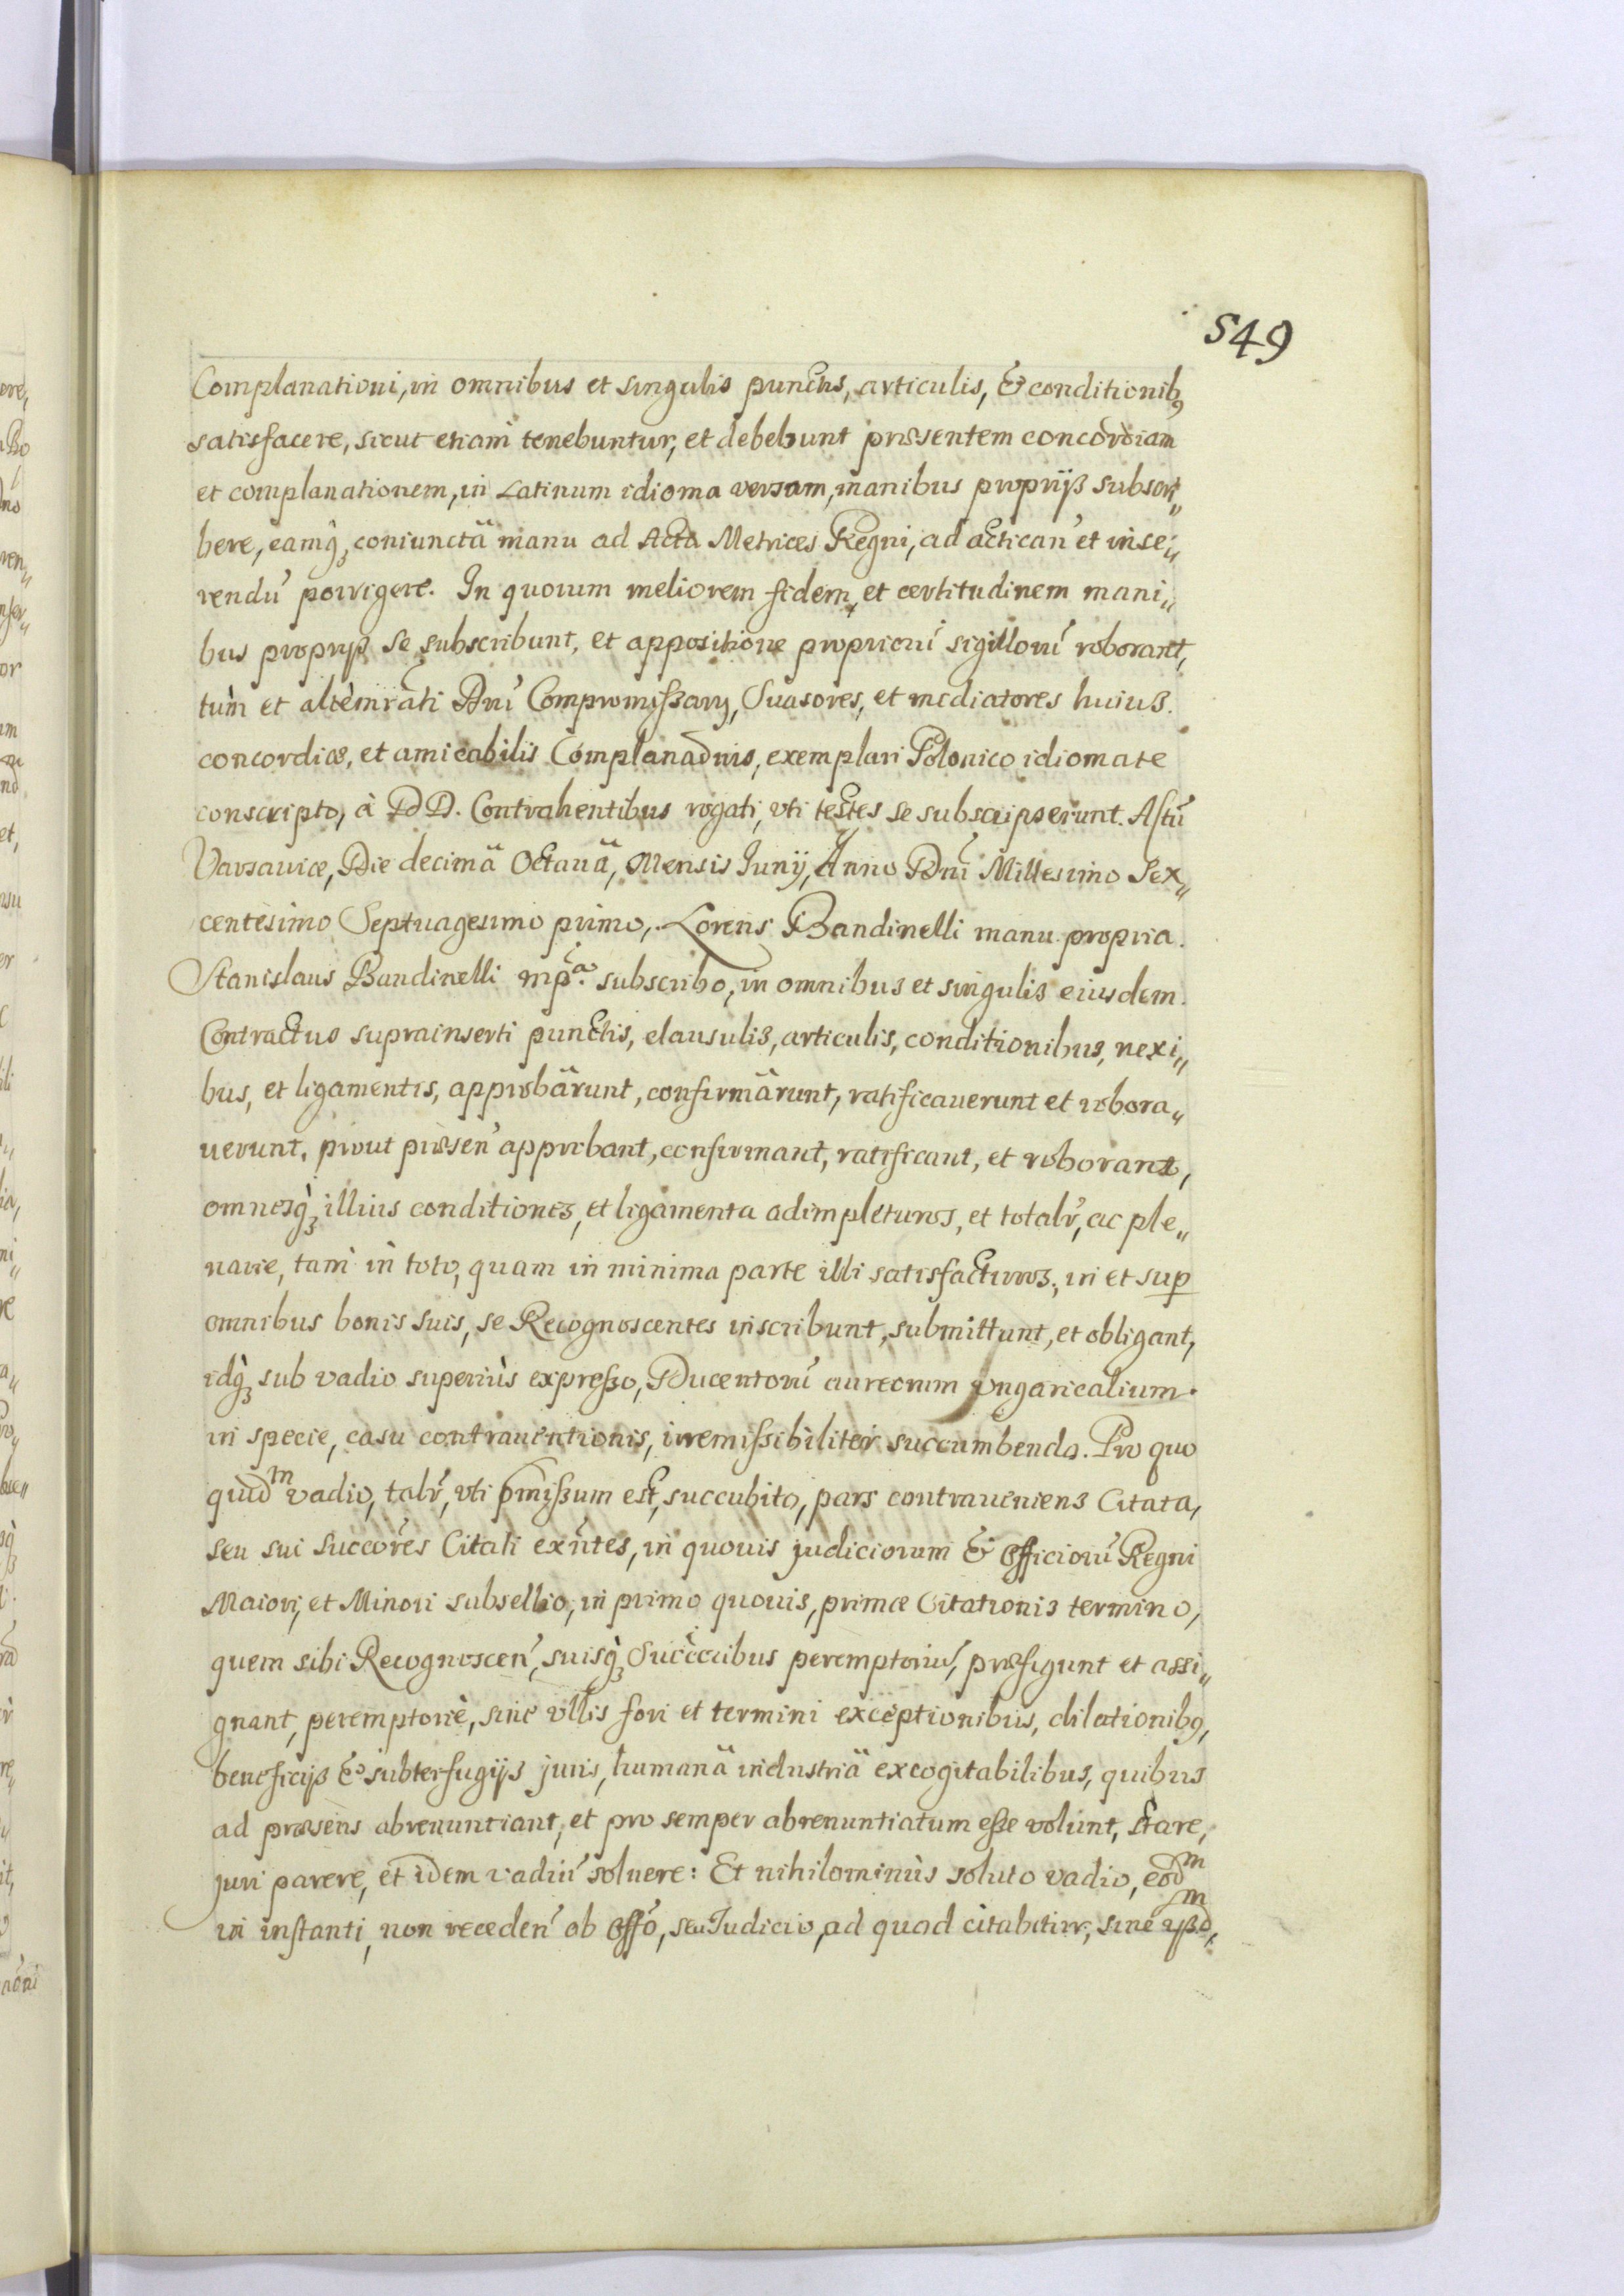 549
Complanationi, in omnibus et singulis punctis, articulis, & conditionib9
satisfacere, sicut etiam tenebuntur, et debebunt præsentem concordiam
et complanationem, in Latinum idioma versam, manibus proprijs subscri„
bere, eamq̀ꝫ coniunctâ manu ad Acta Metrices Regni, ad acticanˀ et inse„
rendũ porrigere. In quorum meliorem fidem, et certitudinem mani„
bus proprijs se subscribunt, et appositione propriorũ sigillorũ roborant,
tùm et altèmrãti Dnĩ Compromissarij, Suasores, et mediatores huius
concordiæ, et amicabilis Complanaōnis, exemplari Polonico idiomate
conscripto, à DD. Contrahentibus rogati, vti testes se subscripserunt. Actũ
Varsaviæ, Die decimâ Octauâ, Mensis Junij, Anno Dnĩ Millesimo Sex„
centesimo Septuagesimo primo, Lorens Bandinelli manu propria.
Stanislaus Bandinelli mpª. subscribo, in omnibus et singulis eiusdem
Contractus suprainserti punctis, clausulis, articulis, conditionibus, nexi„
bus, et ligamentis, approbârunt, confirmârunt, ratificauerunt et robora„
uerunt, prout præsenˀ approbant, confirmant, ratificant, et roborant,
omnesq̀ꝫ illius conditiones, et ligamenta adimpleturos, et totalr̃, ac ple„
narie, tam in toto, quam in minima parte illi satisfacturos, in et sup̱
omnibus bonis suis, se Recognoscentes inscribunt, submittunt, et obligant,
idq̀ꝫ sub vadio superiùs expresso, Ducentorũ aureorum Vngaricalium
in specie, casu contrauentionis, irremissibiliter succumbendo. Pro quo
quidᵐ vadio, talr̃, vti p̄missum est, succubito, pars contraueniens Citata,
seu sui Succōres Citati exñtes, in quouis judiciorum & Officiorũ Regni
Maiori, et Minori subsellio, in primo quouis, primæ Citationis termino,
quem sibi Recognoscenˀ, suisq̀ꝫ Succōribus peremptoriũ, præfigunt et assi„
gnant, peremptoriè, sine vllis fori et termini exceptionibus, dilationib9,
beneficijs & subterfugijs juris, humanâ industriâ excogitabilibus, quibus
ad præsens abrenuntiant, et pro semper abrenuntiatum esse volunt, stare,
juri parere, et idem vadiũ soluere: Et nihilominùs soluto vadio, eodᵐ
in instanti, non recedenˀ ab Offō, seu Judicio, ad quod citabitur, sine ipsoᵐ,